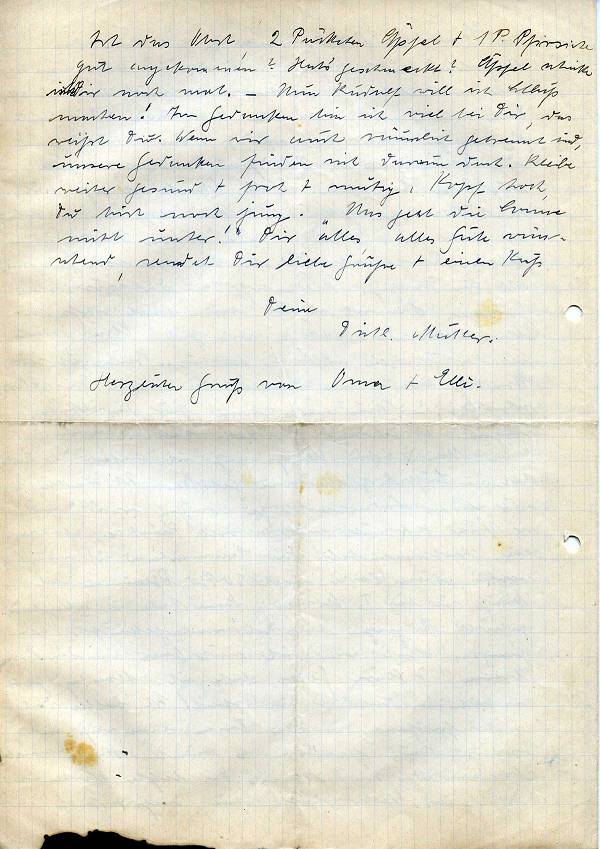 Ist das Obst, 2 Päckchen Äpfel + 1 P. Pfirsiche
gut angekommen? Hat's geschmeckt? Äpfel schicke
ich Dir noch mal. – Nun Rudolf will ich Schluß
machen! In Gedanken bin ich viel bei Dir, das
weißt Du. Wenn wir auch räumlich getrennt sind,
unsere Gedanken finden sich darum doch. Bleibe
weiter gesund + froh + mutig, Kopf hoch,
Du bist noch jung. "Uns geht die Sonne
nicht unter!" Dir alles, alles Gute wün-
schend, sendet Dir liebe Grüße + einen Kuß
Deine
Mutter.
Herzlichen Gruß von Oma + Elli.